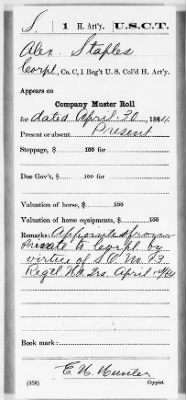 S. | 1 H. Art'y. | U.S.C.T.
Alex. Staples
Corpl, Co. C, 1 Reg't U. S. Col'd H. Art'y.
Appears on
Company Muster Roll
for dated April 30, 1864.
Present or absent Present
Stoppage, $ 100 for
Due Gov't, $ 100 for
Valuation of horse, $ 100
Valuation of horse equipments, $ 100
Remarks: Appointed from
Private to Corpl. by
virtue of S.O. No 13
Regtl Hd Qrs. April 14/64
Book mark:
E. W. Hunter
(358) Copyist.